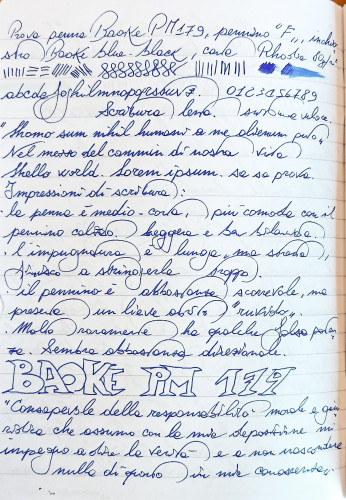 Prova penna Baoke PM179, pennino "F", inchio
stro Baoke blue-black, carta Rhodia 80g/m²
abcdefghilmnopqrstuvz. 0123456789
Scrittura lenta. scrittura veloce.
"Homo sum nihil humani a me alienum puto"
Nel mezzo del cammin di nostra vita
Hello world. Lorem ipsum. sa sa prova.
Impressioni di scrittura:
. la penna è medio-corta, più comoda con il
pennino calzato. Leggera e ben bilanciata
. l'impugnatura è lunga, ma stretta,
finisco a stringerla troppo.
. il pennino è abbastanza scorrevole, ma
presenta un lieve attrito "ruvido".
. Molto raramente ha qualche falsa parten
za. Sembra abbastanza direzionale.
BAOKE PM 179
"Consapevole della responsabilità morale e giu
ridica che assumo con la mia deposizione mi
impegno a dire la verità e a non nascondere
nulla di quanto in mia conoscenza.